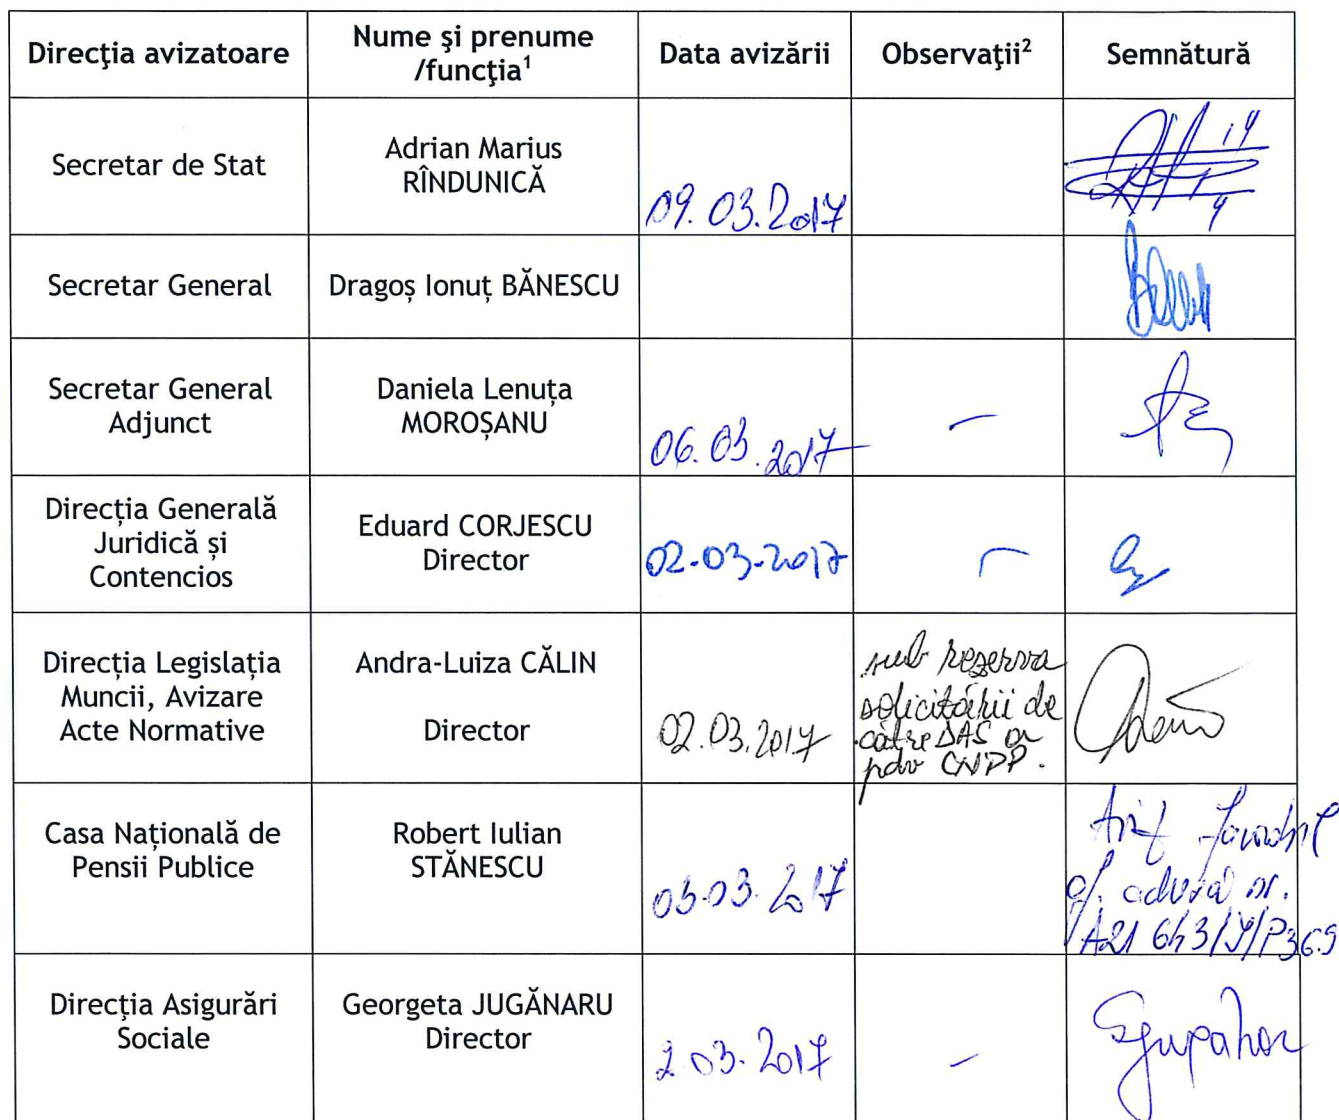 Direcţia avizatoare
Nume şi prenume
/funcţia¹
Data avizării
Observaţii²
Semnătură
Secretar de Stat
Adrian Marius
RÎNDUNICĂ
09.03.2017
Secretar General
Dragoș Ionuț BĂNESCU
Secretar General
Adjunct
Daniela Lenuța
MOROȘANU
06.03.2017
–
Direcția Generală
Juridică și
Contencios
Eduard CORJESCU
Director
02-03-2017
–
Direcția Legislația
Muncii, Avizare
Acte Normative
Andra-Luiza CĂLIN
Director
02.03.2017
sub rezerva
solicitării de
către DAS a
pdv CNPP.
Casa Națională de
Pensii Publice
Robert Iulian
STĂNESCU
03.03.2017
cf. adresă nr.
Direcția Asigurări
Sociale
Georgeta JUGĂNARU
Director
2.03.2017
–